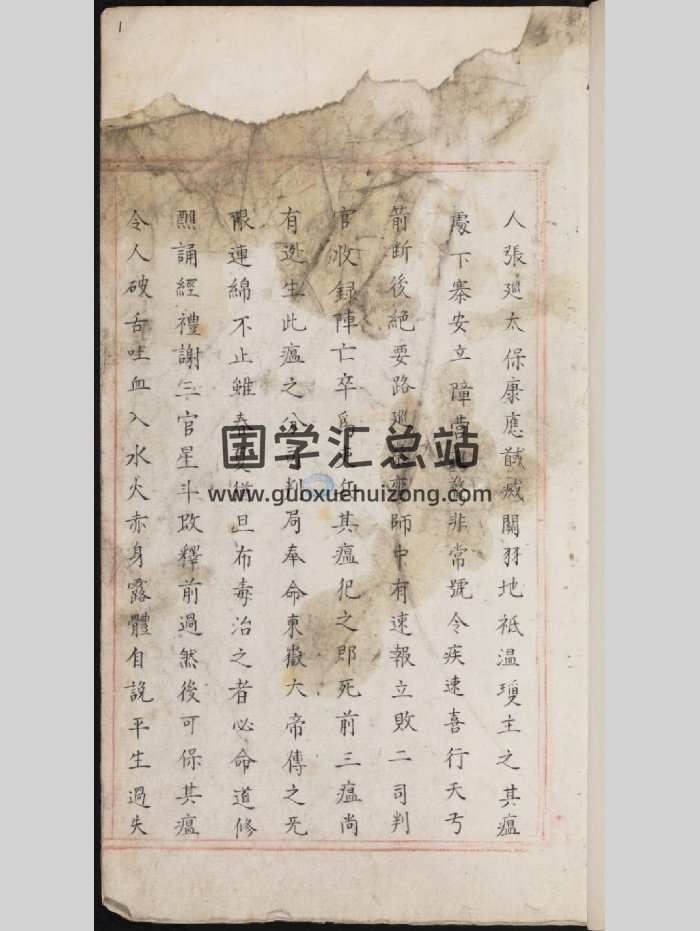 1
人張廵太保康應戩戚關羽地祇温瓊主之其瘟
處下寨安立障營非常號令疾速喜行天丂
箭断後絶要路廵師中有速報立敗二司判
官收録陣亡卒為吏年其瘟犯之即死前三瘟尚
有迯生此瘟之分司判局奉命東嶽大帝傳之旡
限連綿不止雖春夏猶旦布毒治之者必命道修
醮誦經禮謝三官星斗改釋前過然後可保其瘟
令人破舌吐血入水火赤身露體自說平生過失
国学汇总站
www.guoxuehuizong.com